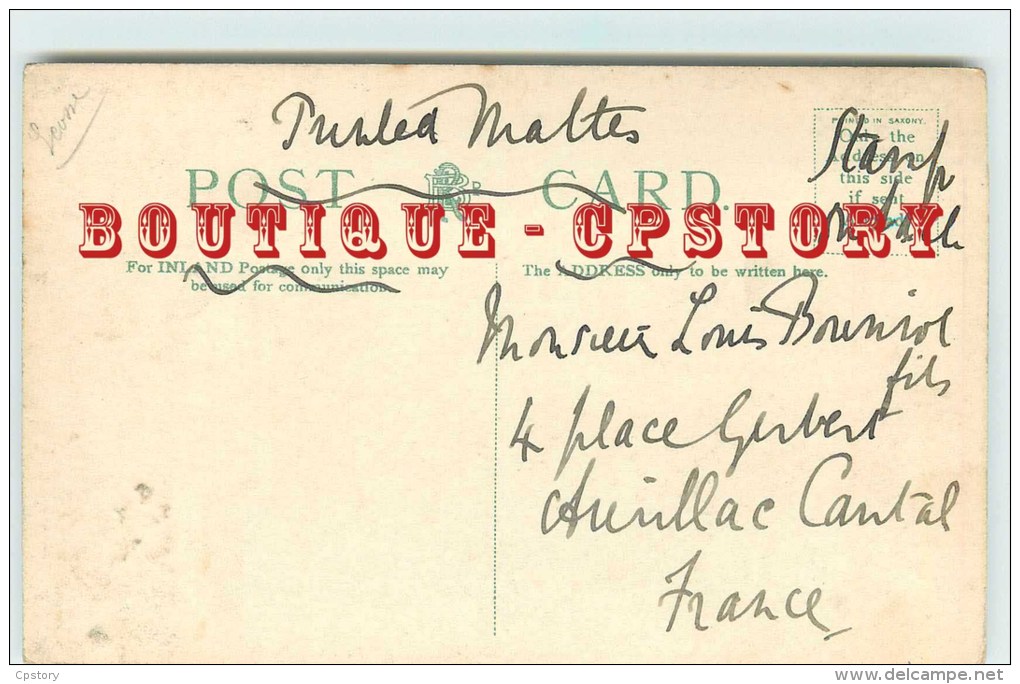 Ecosse
Printed Matter
Stamp
POST CARD.
PRINTED IN SAXONY.
Only the
Address on
this side
if sent
BOUTIQUE - CPSTORY
For INLAND Postage only this space may
be used for communication.
The ADDRESS only to be written here.
Monsieur Louis
fils
4 place Gerbert
Aurillac Cantal
France
Cpstory
delcampe.net